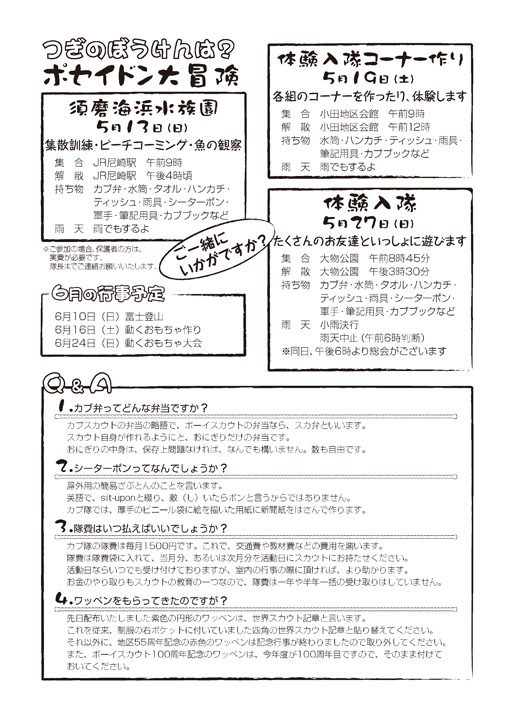 つぎのぼうけんは?
ポセイドン大冒険
須磨海浜水族園
5月13日(日)
集散訓練・ビーチコーミング・魚の観察
集 合 JR尼崎駅 午前9時
解 散 JR尼崎駅 午後4時頃
持ち物 カブ弁・水筒・タオル・ハンカチ・
ティッシュ・雨具・シーターポン・
軍手・筆記用具・カブブックなど
雨 天 雨でもするよ
※ご参加の場合、保護者の方は、
実費が必要です。
隊長までご連絡お願いいたします。
ご一緒に
いかがですか?
6月の行事予定
6月10日(日)富士登山
6月16日(土)動くおもちゃ作り
6月24日(日)動くおもちゃ大会
体験入隊コーナー作り
5月19日(土)
各組のコーナーを作ったり、体験します
集 合 小田地区会館 午前9時
解 散 小田地区会館 午前12時
持ち物 水筒・ハンカチ・ティッシュ・雨具・
筆記用具・カブブックなど
雨 天 雨でもするよ
体験入隊
5月27日(日)
たくさんのお友達といっしょに遊びます
集 合 大物公園 午前8時45分
解 散 大物公園 午後3時30分
持ち物 カブ弁・水筒・タオル・ハンカチ・
ティッシュ・雨具・シーターポン・
軍手・筆記用具・カブブックなど
雨 天 小雨決行
雨天中止(午前6時判断)
※同日、午後6時より総会がございます
Q&A
1.カブ弁ってどんな弁当ですか?
カブスカウトの弁当の略語で、ボーイスカウトの弁当なら、スカ弁といいます。
スカウト自身が作れるようにと、おにぎりだけの弁当です。
おにぎりの中身は、保存上問題なければ、なんでも構いません。数も自由です。
2.シーターポンってなんでしょうか?
屋外用の簡易ざぶとんのことを言います。
英語で、sit-uponと綴り、敷(し)いたらポンと言うからではありません。
カブ隊では、厚手のビニール袋に絵を描いた用紙に新聞紙をはさんで作ります。
3.隊費はいつ払えばいいでしょうか?
カブ隊の隊費は毎月1500円です。これで、交通費や教材費などの費用を賄います。
隊費は隊費袋に入れて、当月分、あるいは次月分を活動日にスカウトにお持たせください。
活動日ならいつでも受け付けておりますが、室内の行事の際に頂ければ、より助かります。
お金のやり取りもスカウトの教育の一つなので、隊費は一年や半年一括の受け取りはしていません。
4.ワッペンをもらってきたのですが?
先日配布いたしました紫色の円形のワッペンは、世界スカウト記章と言います。
これを従来、制服の右ポケットに付いていました四角の世界スカウト記章と貼り替えてください。
それ以外に、地区55周年記念の赤色のワッペンは記念行事が終わりましたので取り外してください。
また、ボーイスカウト100周年記念のワッペンは、今年度が100周年目ですので、そのまま付けて
おいてください。